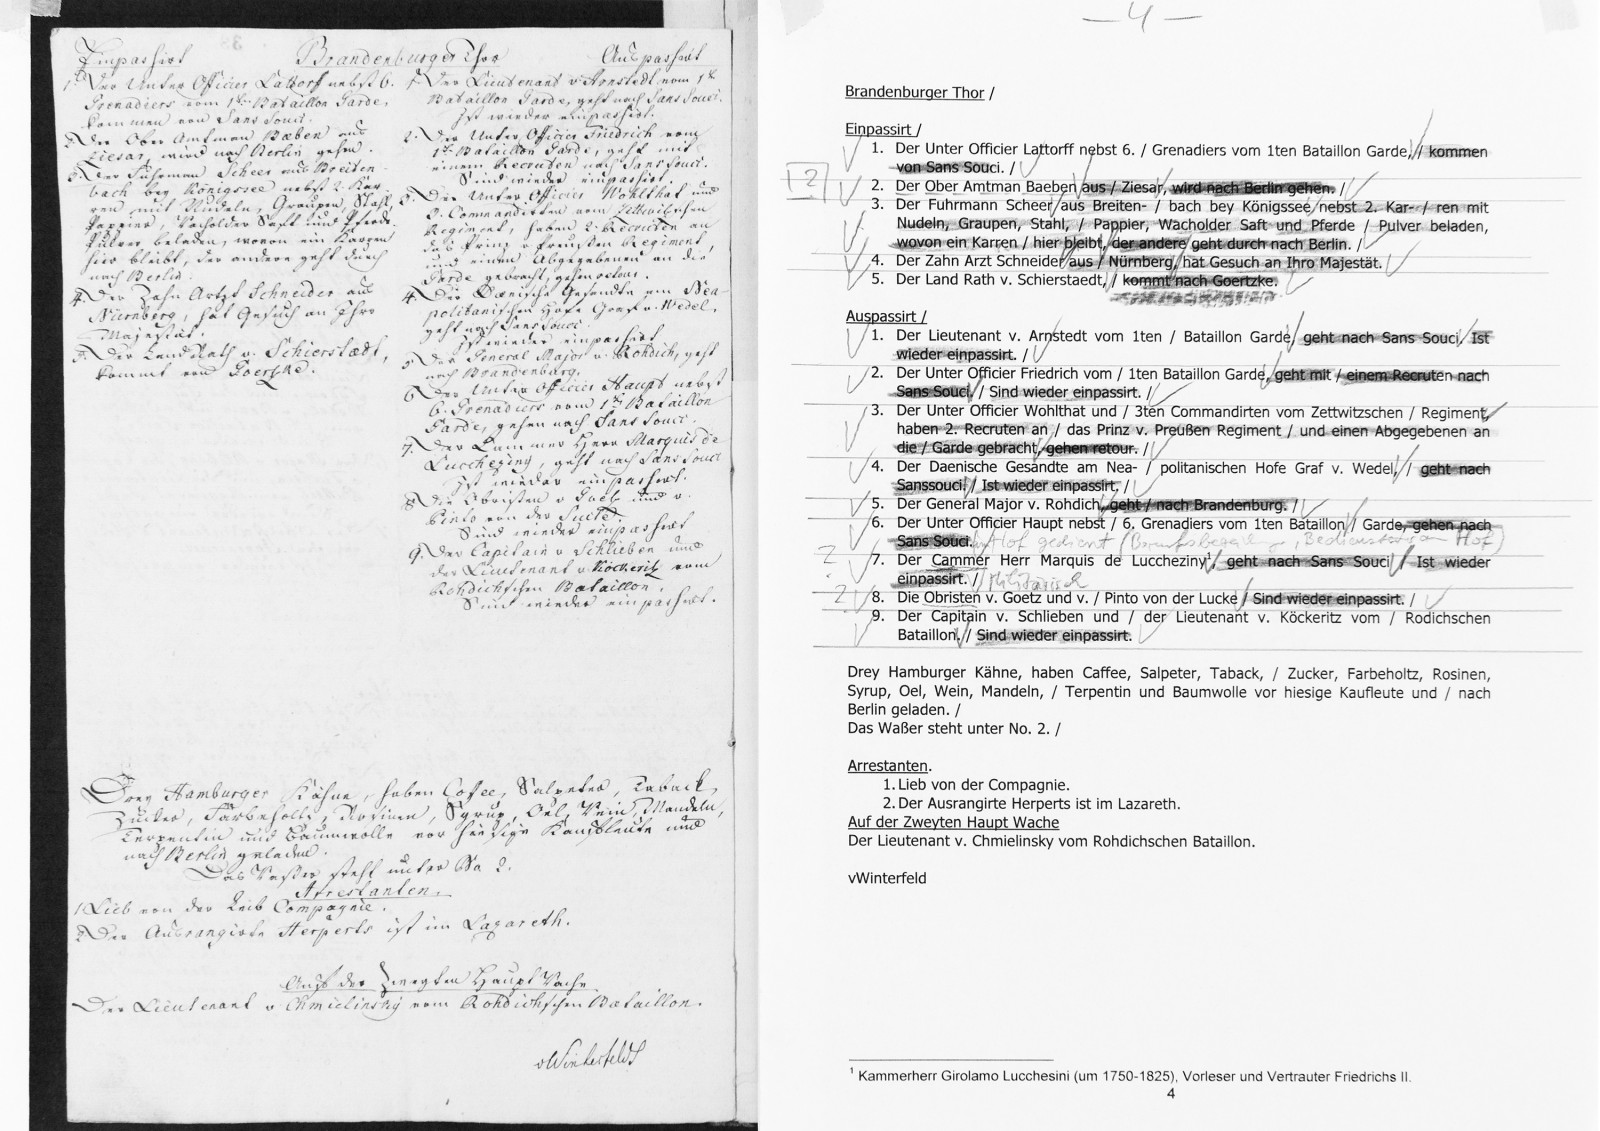 Einpassirt Brandenburger Thor Auspassirt
1. Der Unter Officier Lattorf nebst 6.
Grenadiers vom 1ten Bataillon Garde,
kommen von Sans Souci.
2. Der Ober Amtman Baeben aus
Ziesar, wird nach Berlin gehen.
3. Der Fuhrman Scheer aus Breiten-
bach bey Königsee nebst 2. Kar-
ren mit Nudeln, Graupen, Stahl,
Pappier, Wacholder Saft und Pferde
Pulver beladen, wovon ein Karren
hier bleibt, der andere geht durch
nach Berlin.
4. Der Zahn Artzt Schneider aus
Nürnberg, hat Gesuch an Ihro
Majestät.
5. Der Land Rath v. Schierstædt,
kommt von Goerzke.
1. Der Lieutenant v Arnstedt vom 1ten
Bataillon Garde, geht nach Sans Souci.
Ist wieder einpassirt.
2. Der Unter Officier Friedrich vom
1ten Bataillon Garde, geht mit
einem Recruten nach Sans Souci.
Sind wieder einpassirt.
3. Der Unter Officier Wohlthat und
3. Commandirten vom Zettwitzschen
Regiment, haben 2. Recruten an
das Prinz v Preußen Regiment,
und einen Abgegebenen an die
Garde gebracht, gehen retour.
4. Der Dænische Gesandte am Nea-
politanischen Hofe Graf v. Wedel,
geht nach Sans Souci.
Ist wieder einpassirt.
5. Der General Major v. Rohdich, geht
nach Brandenburg.
6. Der Unter Officier Haupt nebst
6. Grenadiers vom 1ten Bataillon
Garde, gehen nach Sans Souci.
7. Der Cammer Herr Marquis de
Luccheziny, geht nach Sans Souci
Ist wieder einpassirt.
8. Die Obristen v Goetz und v.
Pinto von der Suite.
Sind wieder einpassirt
9. Der Capitain v Schlieben und
der Lieutenant v. Köckeritz vom
Rohdichschen Bataillon.
Sind wieder einpassirt.
Drey Hamburger Kähne, haben Coffee, Salpeter, Taback,
Zucker, Farbeholtz, Rosinen, Syrup, Oel, Wein, Mandeln,
Terpentin und Baumwolle vor hiesige Kaufleute und
nach Berlin geladen.
Das Waßer steht unter No 2.
Arrestanten.
1. Lieb von der Leib Compagnie.
2. Der Ausrangirte Herperts ist im Lazareth.
Auf der Zweyten Haupt Wache
Der Lieutenant v Chmielinsky vom Rohdichschen Bataillon.
vWinterfeldt
— 4 —
Brandenburger Thor /
Einpassirt /
1. Der Unter Officier Lattorff nebst 6. / Grenadiers vom 1ten Bataillon Garde, / kommen
von Sans Souci. /
2. Der Ober Amtman Baeben aus / Ziesar, wird nach Berlin gehen. /
3. Der Fuhrmann Scheer aus Breiten- / bach bey Königssee nebst 2. Kar- / ren mit
Nudeln, Graupen, Stahl, / Pappier, Wacholder Saft und Pferde / Pulver beladen,
wovon ein Karren / hier bleibt, der andere geht durch nach Berlin. /
4. Der Zahn Arzt Schneider aus / Nürnberg, hat Gesuch an Ihro Majestät.
5. Der Land Rath v. Schierstaedt, / kommt nach Goertzke.
Auspassirt /
1. Der Lieutenant v. Arnstedt vom 1ten / Bataillon Garde, geht nach Sans Souci. Ist
wieder einpassirt. /
2. Der Unter Officier Friedrich vom / 1ten Bataillon Garde, geht mit / einem Recruten nach
Sans Souci. / Sind wieder einpassirt. /
3. Der Unter Officier Wohlthat und / 3ten Commandirten vom Zettwitzschen / Regiment,
haben 2. Recruten an / das Prinz v. Preußen Regiment / und einen Abgegebenen an
die / Garde gebracht, gehen retour. /
4. Der Daenische Gesandte am Nea- / politanischen Hofe Graf v. Wedel, / geht nach
Sanssouci. / Ist wieder einpassirt. /
5. Der General Major v. Rohdich, geht / nach Brandenburg. /
6. Der Unter Officier Haupt nebst / 6. Grenadiers vom 1ten Bataillon / Garde, gehen nach
Sans Souci. Hof gedient (Bedienstete am Hof)
? 7. Der Cammer Herr Marquis de Luccheziny¹, geht nach Sans Souci / Ist wieder
einpassirt. / Militärisch
? 8. Die Obristen v. Goetz und v. / Pinto von der Lucke / Sind wieder einpassirt. /
9. Der Capitain v. Schlieben und / der Lieutenant v. Köckeritz vom / Rodichschen
Bataillon. / Sind wieder einpassirt.
Drey Hamburger Kähne, haben Caffee, Salpeter, Taback, / Zucker, Farbeholtz, Rosinen,
Syrup, Oel, Wein, Mandeln, / Terpentin und Baumwolle vor hiesige Kaufleute und / nach
Berlin geladen. /
Das Waßer steht unter No. 2. /
Arrestanten.
1. Lieb von der Compagnie.
2. Der Ausrangirte Herperts ist im Lazareth.
Auf der Zweyten Haupt Wache
Der Lieutenant v. Chmielinsky vom Rohdichschen Bataillon.
vWinterfeld
¹ Kammerherr Girolamo Lucchesini (um 1750-1825), Vorleser und Vertrauter Friedrichs II.
4